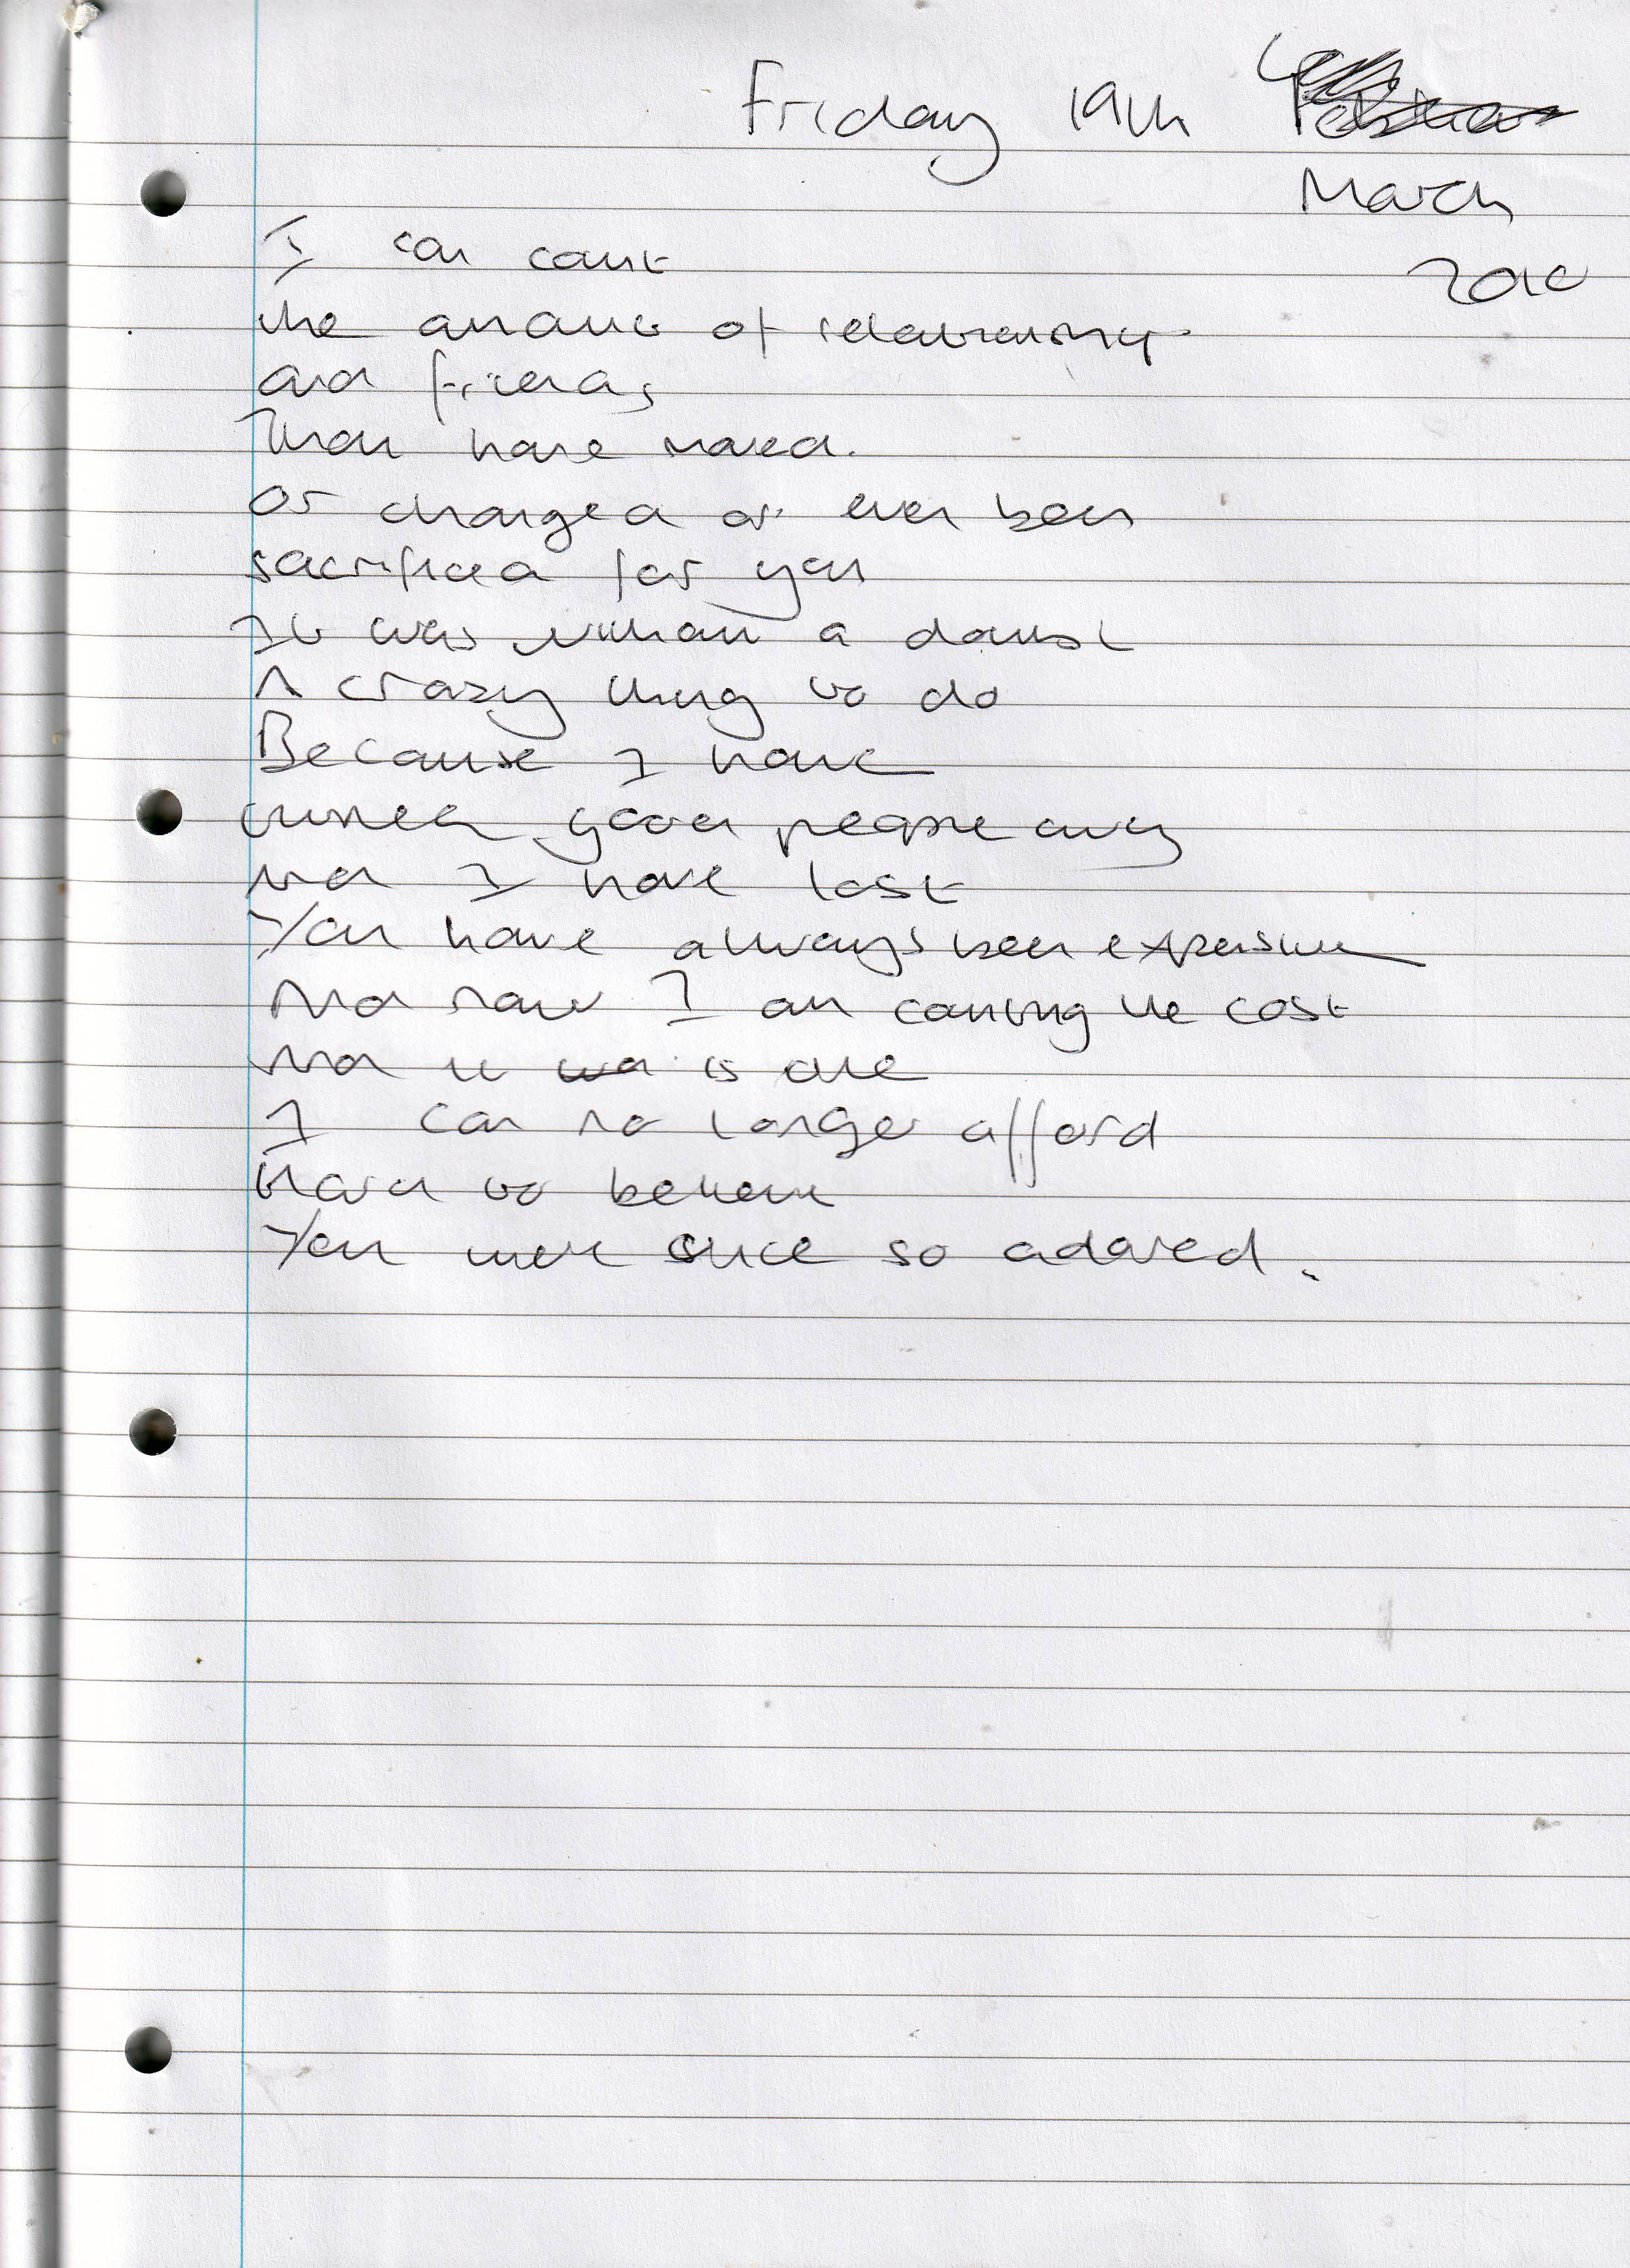 Friday 19th
March
2010
I can count
the amount of relationships
and friends
That have moved.
Or changed or even been
sacrificed for you
It was without a doubt
A crazy thing to do
Because I have
pushed good people away
And I have lost
You have always been expensive
And now I am counting the cost
And it is one
I can no longer afford
Hard to believe
You were once so adored.